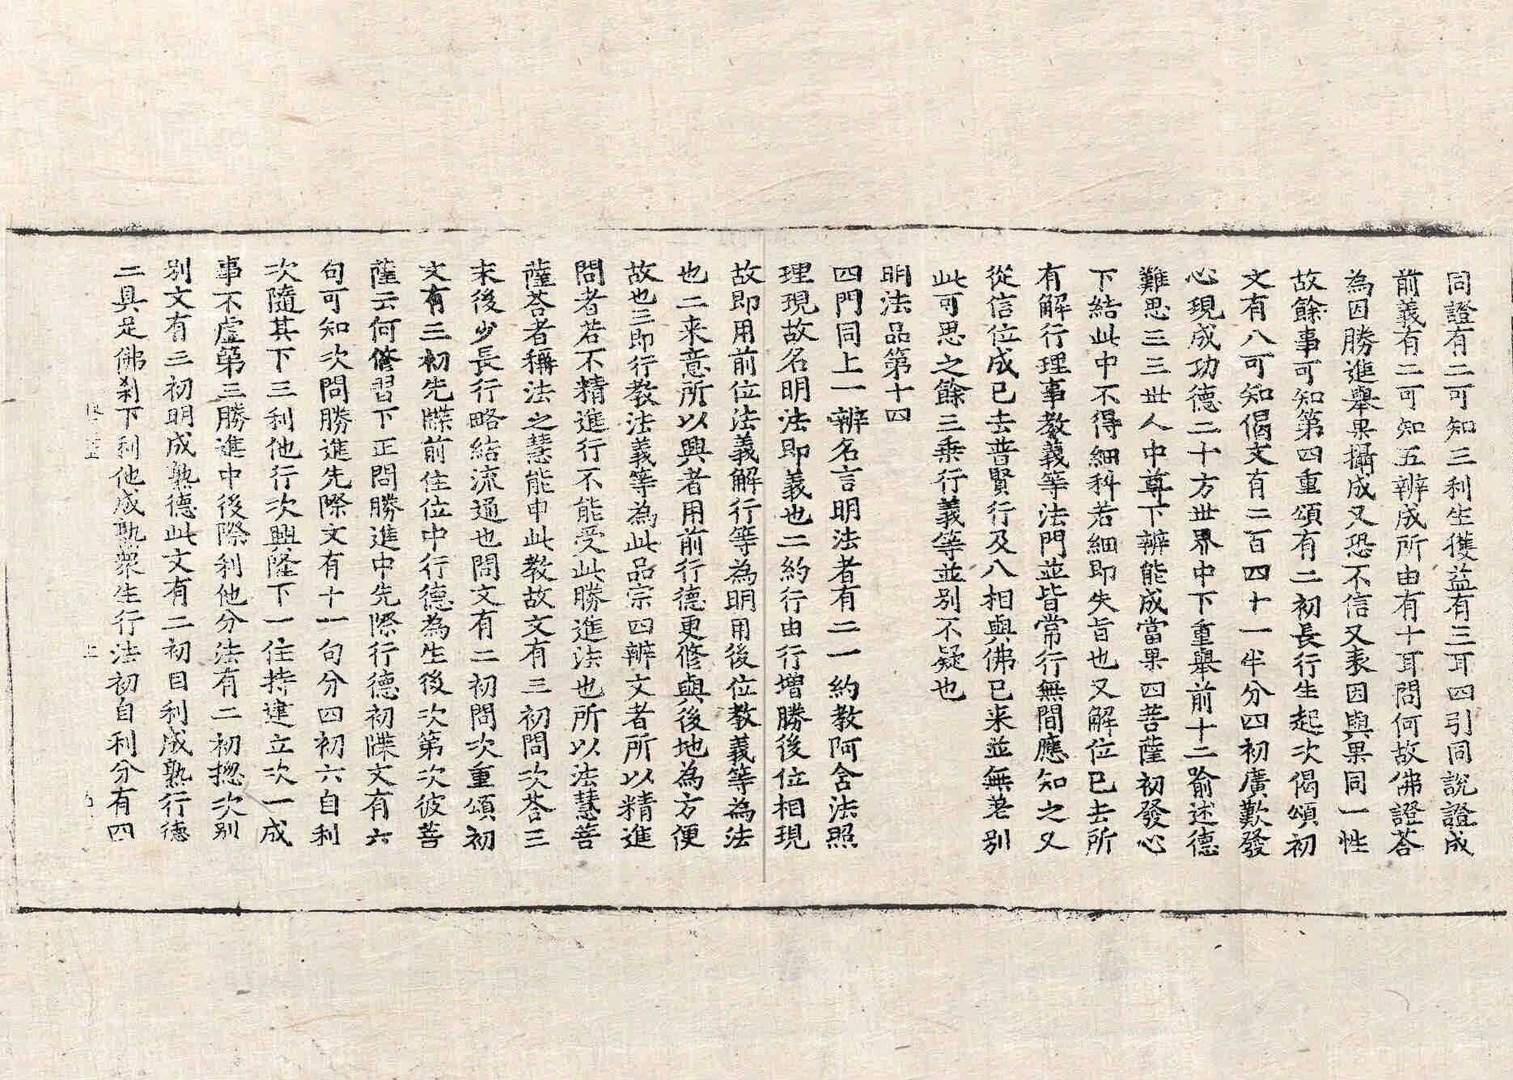 同證有二可知三利生獲益有三耳四引同說證成
前義有二可知五辨成所由有十耳問何故佛證荅
為因勝進舉果攝成又恐不信又表因與果同一性
故餘事可知第四重頌有二初長行生起次偈頌初
文有八可知偈文有二百四十一半分四初廣歎發
心現成功德二十方世界中下重舉前十二喻述德
難思三三世人中尊下辨能成當果四菩薩初發心
下結此中不得細科若細即失旨也又解位已去所
有解行理事教義等法門並皆常行無間應知之又
從信位成已去普賢行及八相與佛已来並無差別
此可思之餘三乗行義等並別不疑也
明法品第十四
四門同上一辨名言明法者有二一約教阿含法照
理現故名明法即義也二約行由行增勝後位相現
故即用前位法義解行等為明用後位教義等為法
也二来意所以興者用前行德更修與後地為方便
故也三即行教法義等為此品宗四辨文者所以精進
問者若不精進行不能受此勝進法也所以法慧菩
薩荅者稱法之慧能申此教故文有三初問次荅三
末後少長行略結流通也問文有二初問次重頌初
文有三初先牒前住位中行德為生後次第次彼菩
薩云何修習下正問勝進中先際行德初牒文有六
句可知次問勝進先際文有十一句分四初六自利
次隨其下三利他行次興隆下一住持建立次一成
事不虛第三勝進中後際利他分法有二初揔次別
別文有三初明成熟德此文有二初目利成熟行德
二具足佛刹下利他成熟衆生行法初自利分有四